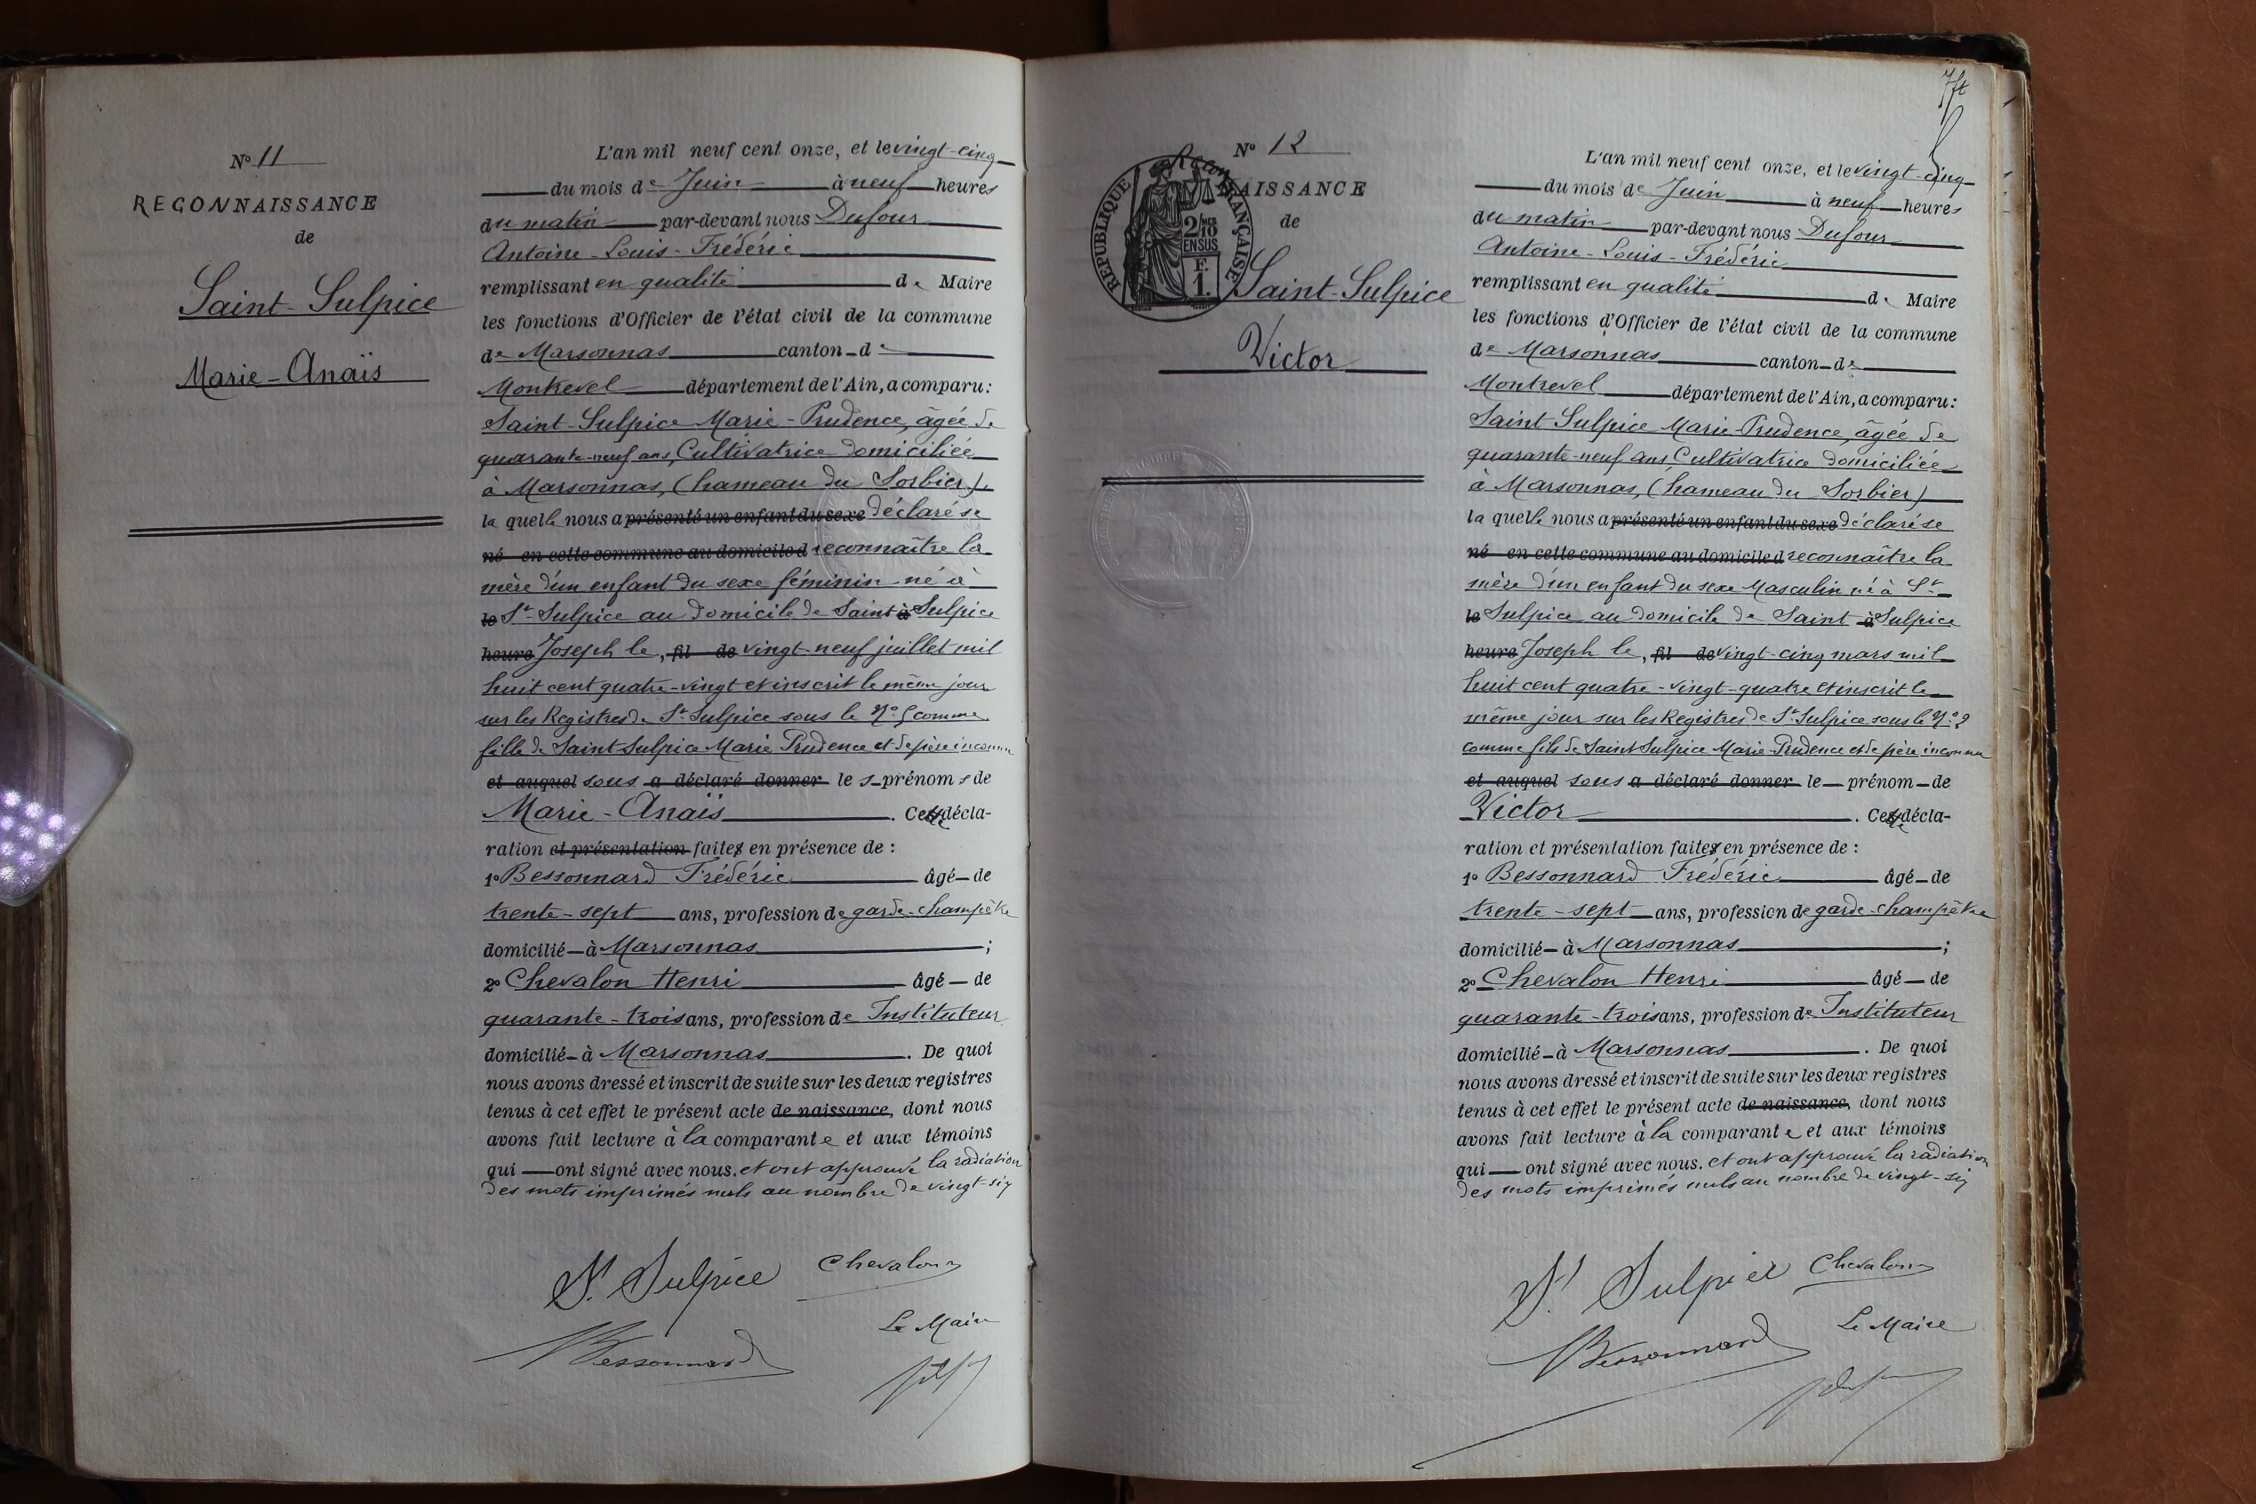 Nº 11
RECONNAISSANCE
de
Saint-Sulpice
Marie-Anaïs
L'an mil neuf cent onze, et le vingt-cinq
du mois de Juin à neuf heures
du matin par-devant nous Dufour
Antoine-Louis-Frédéric
remplissant en qualité de Maire
les fonctions d'Officier de l'état civil de la commune
de Marsonnas canton de
Montrevel département de l'Ain, a comparu:
Saint-Sulpice Marie-Prudence, âgée de
quarante-neuf ans, Cultivatrice domiciliée
à Marsonnas, (hameau du Sorbier)
la quelle nous a présenté un enfant du sexe déclaré se
né en cette commune au domicile d reconnaître la
mère d'un enfant du sexe féminin né à
le St-Sulpice au domicile de Saint à Sulpice
heure Joseph le, fil de vingt-neuf juillet mil
huit cent quatre-vingt et inscrit le même jour
sur les Registres de St-Sulpice sous le Nº 5 comme
fille de Saint-Sulpice Marie Prudence et de père inconnu
et auquel sous a déclaré donner le s prénom s de
Marie-Anaïs. Cette décla-
ration et présentation faites en présence de :
1º Bessonnard Frédéric âgé de
trente-sept ans, profession de garde-champêtre
domicilié à Marsonnas ;
2º Chevalon Henri âgé de
quarante-trois ans, profession de Instituteur
domicilié à Marsonnas. De quoi
nous avons dressé et inscrit de suite sur les deux registres
tenus à cet effet le présent acte de naissance, dont nous
avons fait lecture à la comparante et aux témoins
qui ont signé avec nous. et ont approuvé la radiation
des mots imprimés nuls au nombre de vingt-six
St. Sulpice Chevalon
Le Maire
Bessonnard
Nº 12
RECONNAISSANCE
de
RÉPUBLIQUE FRANÇAISE
2/10
EN SUS
F.
1.
Saint-Sulpice
Victor
L'an mil neuf cent onze, et le vingt-cinq
du mois de Juin à neuf heures
du matin par-devant nous Dufour
Antoine-Louis-Frédéric
remplissant en qualité de Maire
les fonctions d'Officier de l'état civil de la commune
de Marsonnas canton de
Montrevel département de l'Ain, a comparu:
Saint Sulpice Marie-Prudence, âgée de
quarante-neuf ans, Cultivatrice domiciliée
à Marsonnas, (hameau du Sorbier)
la quelle nous a présenté un enfant du sexe déclaré se
né en cette commune au domicile d reconnaître la
mère d'un enfant du sexe Masculin né à St-
le Sulpice au domicile de Saint à Sulpice
heure Joseph le, fil de vingt-cinq mars mil
huit cent quatre-vingt-quatre et inscrit le
même jour sur les Registres de St-Sulpice sous le Nº 2
comme fils de Saint Sulpice Marie-Prudence et de père inconnu
et auquel sous a déclaré donner le prénom de
Victor. Cette décla-
ration et présentation faites en présence de :
1º Bessonnard Frédéric âgé de
trente-sept ans, profession de garde-champêtre
domicilié à Marsonnas ;
2º Chevalon Henri âgé de
quarante-trois ans, profession de Instituteur
domicilié à Marsonnas. De quoi
nous avons dressé et inscrit de suite sur les deux registres
tenus à cet effet le présent acte de naissance, dont nous
avons fait lecture à la comparante et aux témoins
qui ont signé avec nous. et ont approuvé la radiation
des mots imprimés nuls au nombre de vingt-six
St. Sulpice Chevalon
Le Maire
Bessonnard